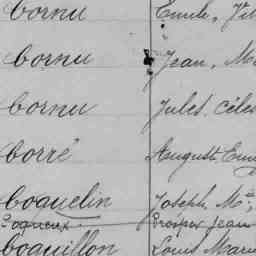 Cornu Emile,
Cornu Jean, Ma
Cornu Jules Céles
Corré Auguste
Coquelin Joseph M.
Coqueux Prosper Jean
Coquillon Louis Marie